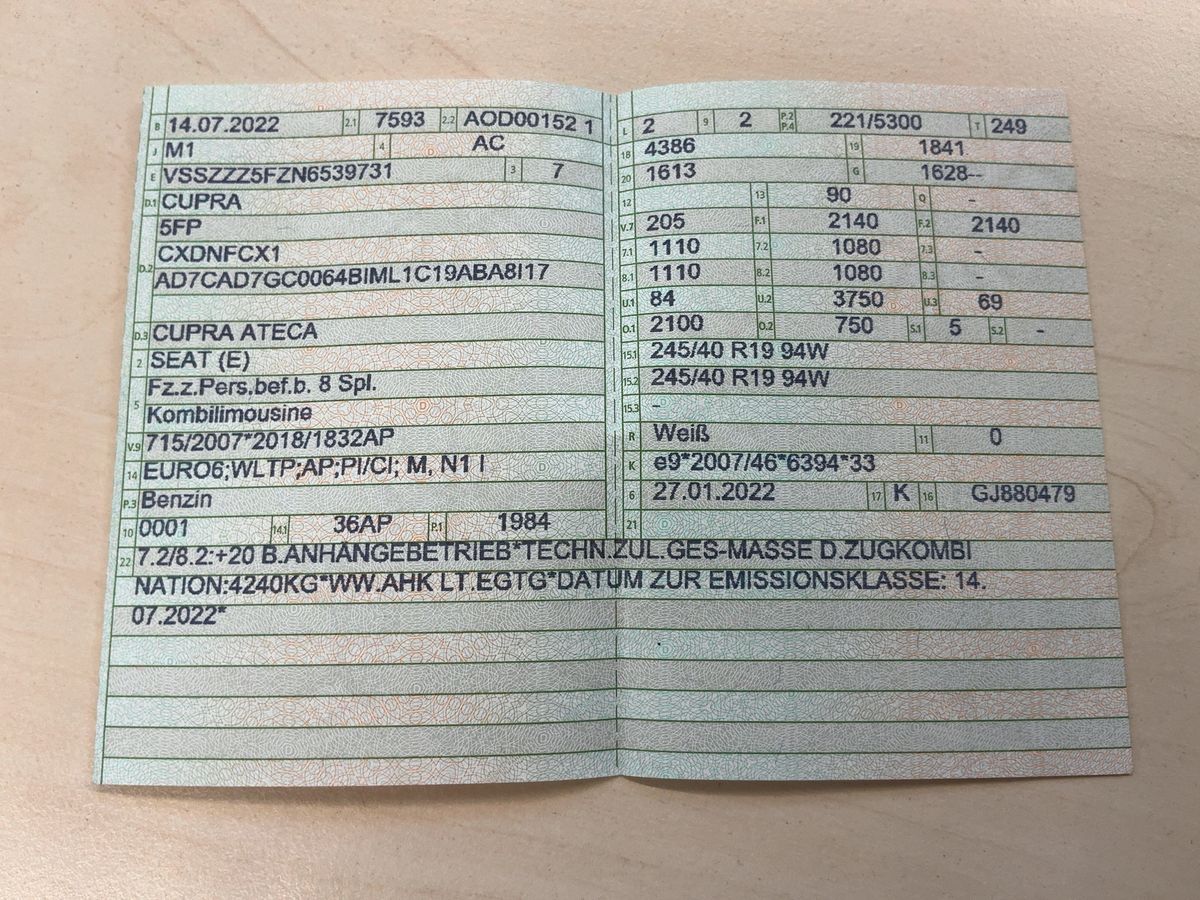 B 14.07.2022 2.1 7593 2.2 AOD00152 1
J M1 4 AC
E VSSZZZ5FZN6539731 3 7
D.1 CUPRA
5FP
D.2 CXDNFCX1
AD7CAD7GC0064BIML1C19ABA8I17
D.3 CUPRA ATECA
2 SEAT (E)
5 Fz.z.Pers.bef.b. 8 Spl.
Kombilimousine
V.9 715/2007*2018/1832AP
14 EURO6;WLTP;AP;PI/CI; M, N1 I
P.3 Benzin
10 0001 14.1 36AP P.1 1984
L 2 9 2 P.2 P.4 221/5300 T 249
18 4386 19 1841
20 1613 G 1628--
12 13 90 Q -
V.7 205 F.1 2140 F.2 2140
7.1 1110 7.2 1080 7.3 -
8.1 1110 8.2 1080 8.3 -
U.1 84 U.2 3750 U.3 69
O.1 2100 O.2 750 S.1 5 S.2 -
15.1 245/40 R19 94W
15.2 245/40 R19 94W
15.3 -
R Weiß 11 0
K e9*2007/46*6394*33
6 27.01.2022 17 K 16 GJ880479
21
22 7.2/8.2:+20 B.ANHÄNGEBETRIEB*TECHN.ZUL.GES-MASSE D.ZUGKOMBI
NATION:4240KG*WW.AHK LT.EGTG*DATUM ZUR EMISSIONSKLASSE: 14.
07.2022*